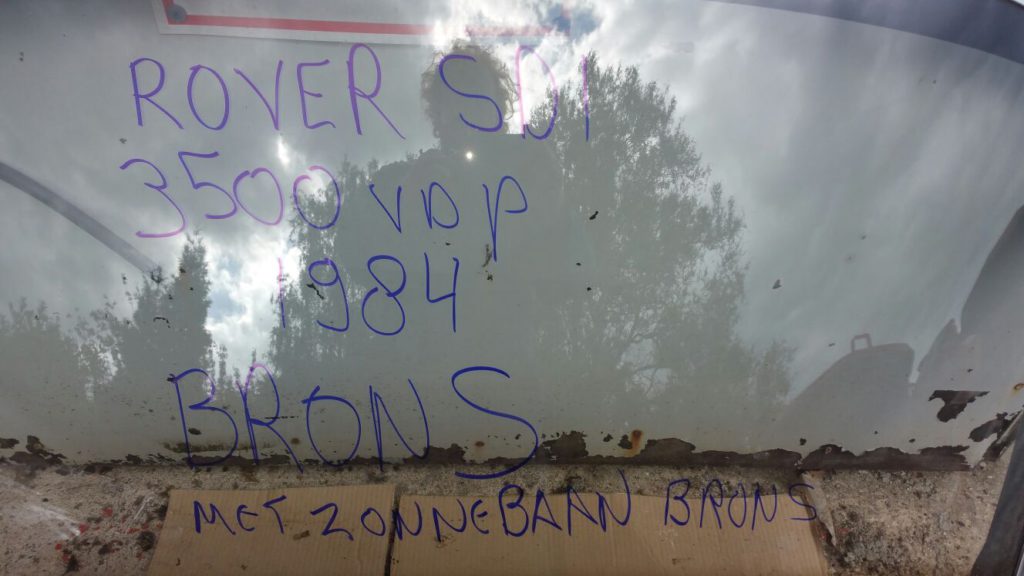 ROVER SDI
3500 VDP
1984
BRONS
MET ZONNEBAAN BRONS